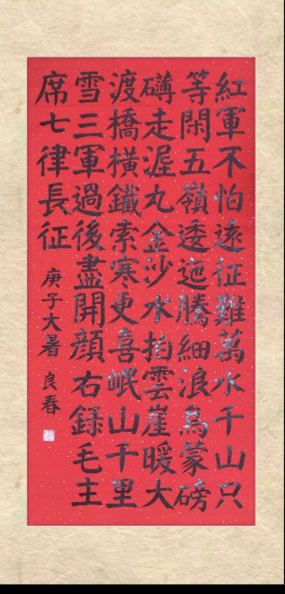 紅軍不怕遠征難萬水千山只
等閑五嶺逶迤騰細浪烏蒙磅
礴走渥丸金沙水拍雲崖暖大
渡橋橫鐵索寒更喜岷山千里
雪三軍過後盡開顏右録毛主
席七律長征
庚子大暑 良春